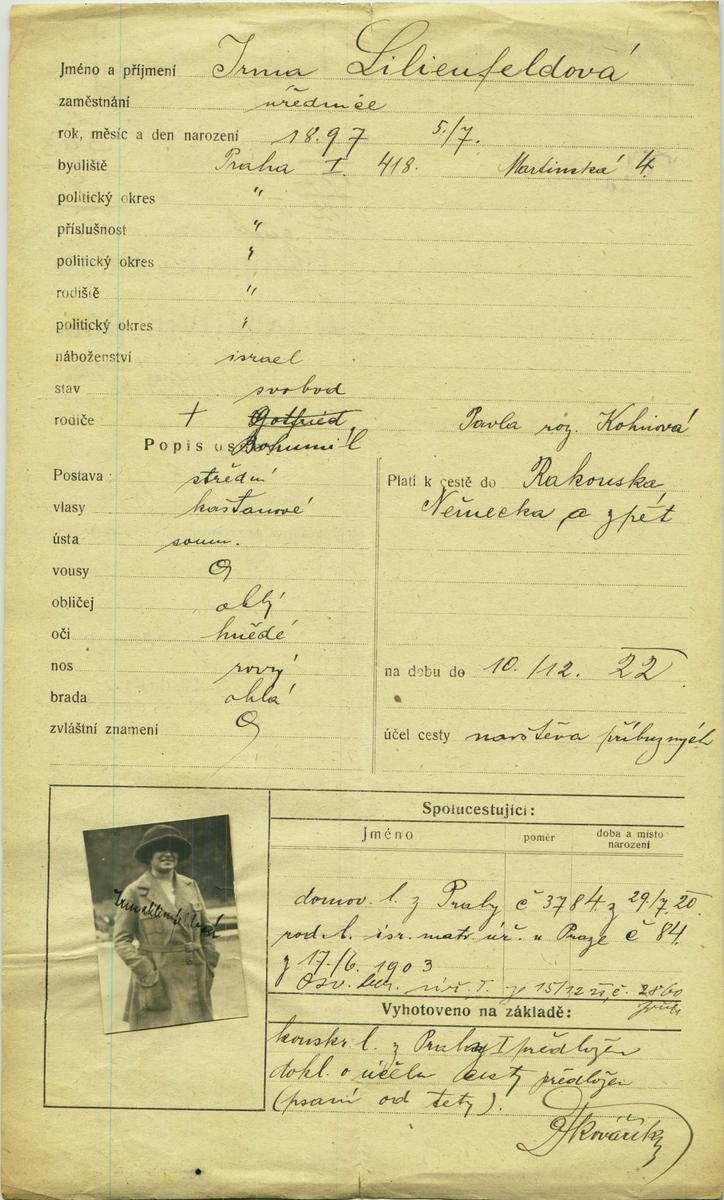 Jméno a příjmení Irma Lilienfeldová
zaměstnání úřednice
rok, měsíc a den narození 1897 5/7.
bydliště Praha I. 418. Martinská 4.
politický okres "
příslušnost "
politický okres "
rodiště "
politický okres "
náboženství israel
stav svobod
rodiče + Gotfried Pavla roz. Kohnová
Popis os Bohumil
Postava střední
vlasy kaštanové
ústa soum.
vousy
obličej oblý
oči hnědé
nos rovný
brada oblá
zvláštní znamení
Platí k cestě do Rakouska,
Německa a zpět
na dobu do 10./12. 22
účel cesty návštěva příbuzných
Irma Lilienfeldová
Spolucestující:
Jméno poměr doba a místo narození
domov. l. z Prahy č 3784. z 29/7. 20.
rod. l. isr. matr. úř. v Praze č 84.
z 17./6. 1903
Osv. ber. úř. I. z 15/12 č. 2860
Vyhotoveno na základě:
konskr. l. z Prahy I předložen
dokl. o účelu cesty předložen
(psaní od tety).
Kovářík